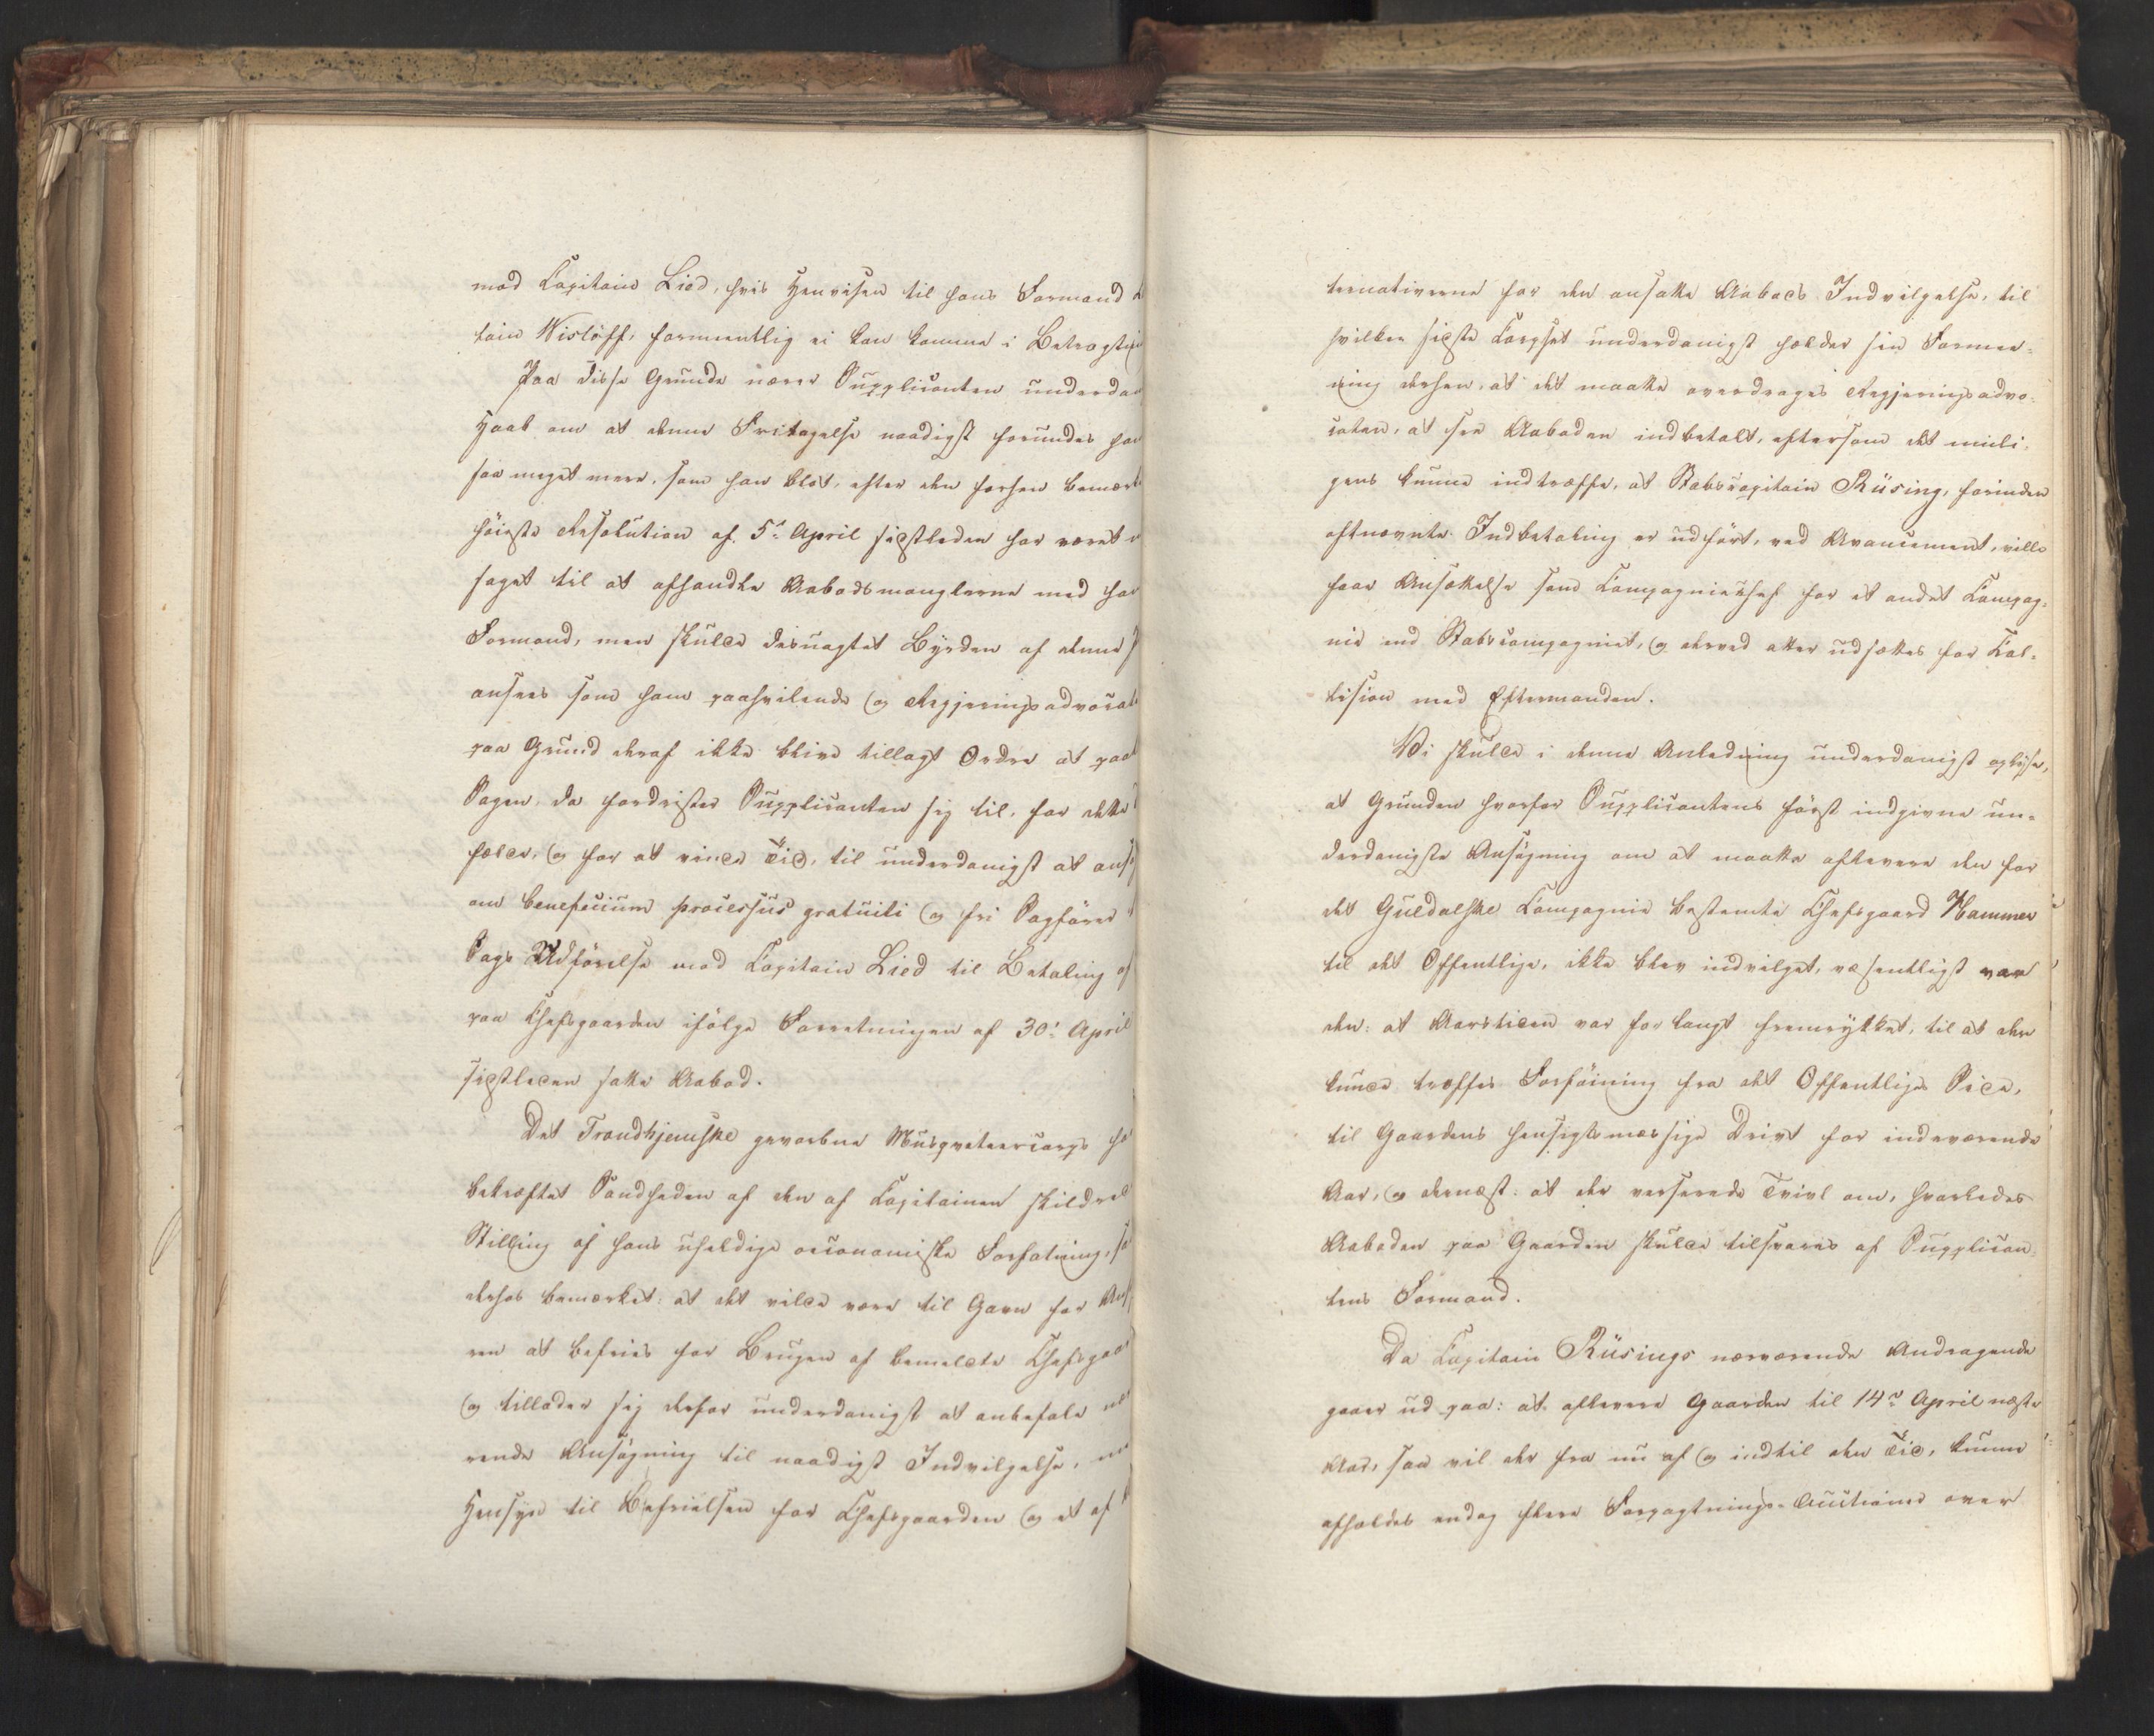 mod Capitain Lied, hvis Henviisen til hans Formand
tain Wislöff, formeentlig ei kan komme i Betragtni
Paa disse Grunde nærer Supplicanten underda
Haab om at denne Fritagelse naadigst forundes ha
saa meget mere, som han blot, efter den forhen bemær
höieste Resolution af 5te April sidstleden har været
saget til at afhandle Aabodsmanglerne med ha
Formand, men skulde desuagtet Byrden af denne
ansees som ham paahvilende og Regjeringsadvocat
paa Grund deraf ikke blive tillagt Ordre at paa
Sagen, da fordrister Supplicanten sig til, for dette
fælde, og for at vinde Tid, til underdanigst at ans
om beneficium processus gratuiti og fri Sagförer
Sags Udförelse mod Capitain Lied til Betaling af
paa Chefsgaarden ifölge Forretningen af 30te April
sidstleden satte Aabod.
Det Trondhjemske gevorbne Musqueteercorps ha
bekræftet Sandheden af den af Capitainen skildre
Stilling af hans uheldige oeconomiske Forfatning, sa
derhos bemærket: at det vilde være til Gavn for Ans
ren at befries for Brugen af bemeldte Chefsgaa
og tillader sig derfor underdanigst at anbefale
rende Ansögning til naadigst Indvilgelse,
Hensyn til Befrielsen for Chefsgaarden og et af
ternativerne for den ansatte Aabods Indvilgelse, til
hvilken sidste Corpset underdanigst holder sin Formee-
ning derhen, at det maatte overdrages Regjeringsadvo-
caten, at see Aaboden indbetalt, eftersom det muli-
gens kunne indtræffe, at Stabscapitain Rüsing, forinden
oftnævnte Indbetaling er udfört, ved Avancement, ville
faae Ansættelse som Compagniechef for et andet Compag-
nie end Stabscompagniet, og derved atter udsættes for Col-
lision med Eftermanden.
Vi skulde i denne Anledning underdanigst oplyse,
at Grunden hvorfor Supplicantens först indgivne un-
derdanigste Ansögning om at maatte aflevere den for
det Guldalske Compagnie bestemte Chefsgaard Hammer
til det Offentlige, ikke blev indvilget, væsentligst var
den: at Aarstiden var for langt fremrykket, til at der
kunde træffes Forföining fra det Offentliges Side,
til Gaardens hensigtsmæssige Drivt for indeværende
Aar, og dernæst: at der verserede Tvivl om, hvorledes
Aaboden paa Gaarden skulde tilsvares af Supplican-
tens Formand.
Da Capitain Rüsings nærværende Andragende
gaaer ud paa: at aflevere Gaarden til 14de April næste
Aar, saa vil der fra nu af og indtil den Tid, kunne
afholdes endog flere Forpagtnings-Auctioner over